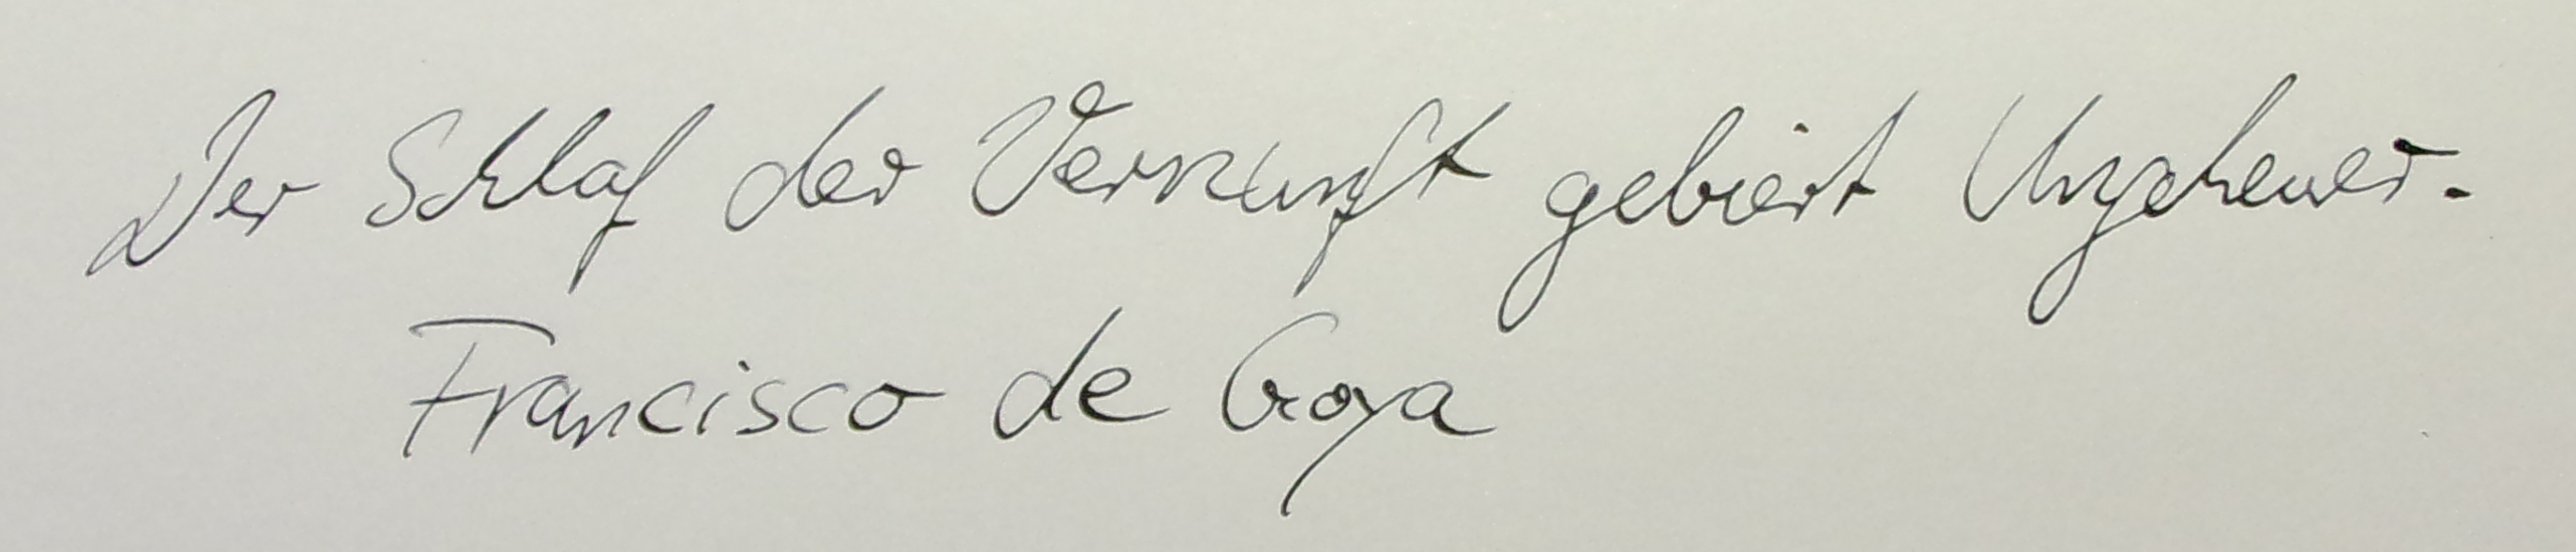 Der Schlaf der Vernunft gebiert Ungeheuer.
Francisco de Goya